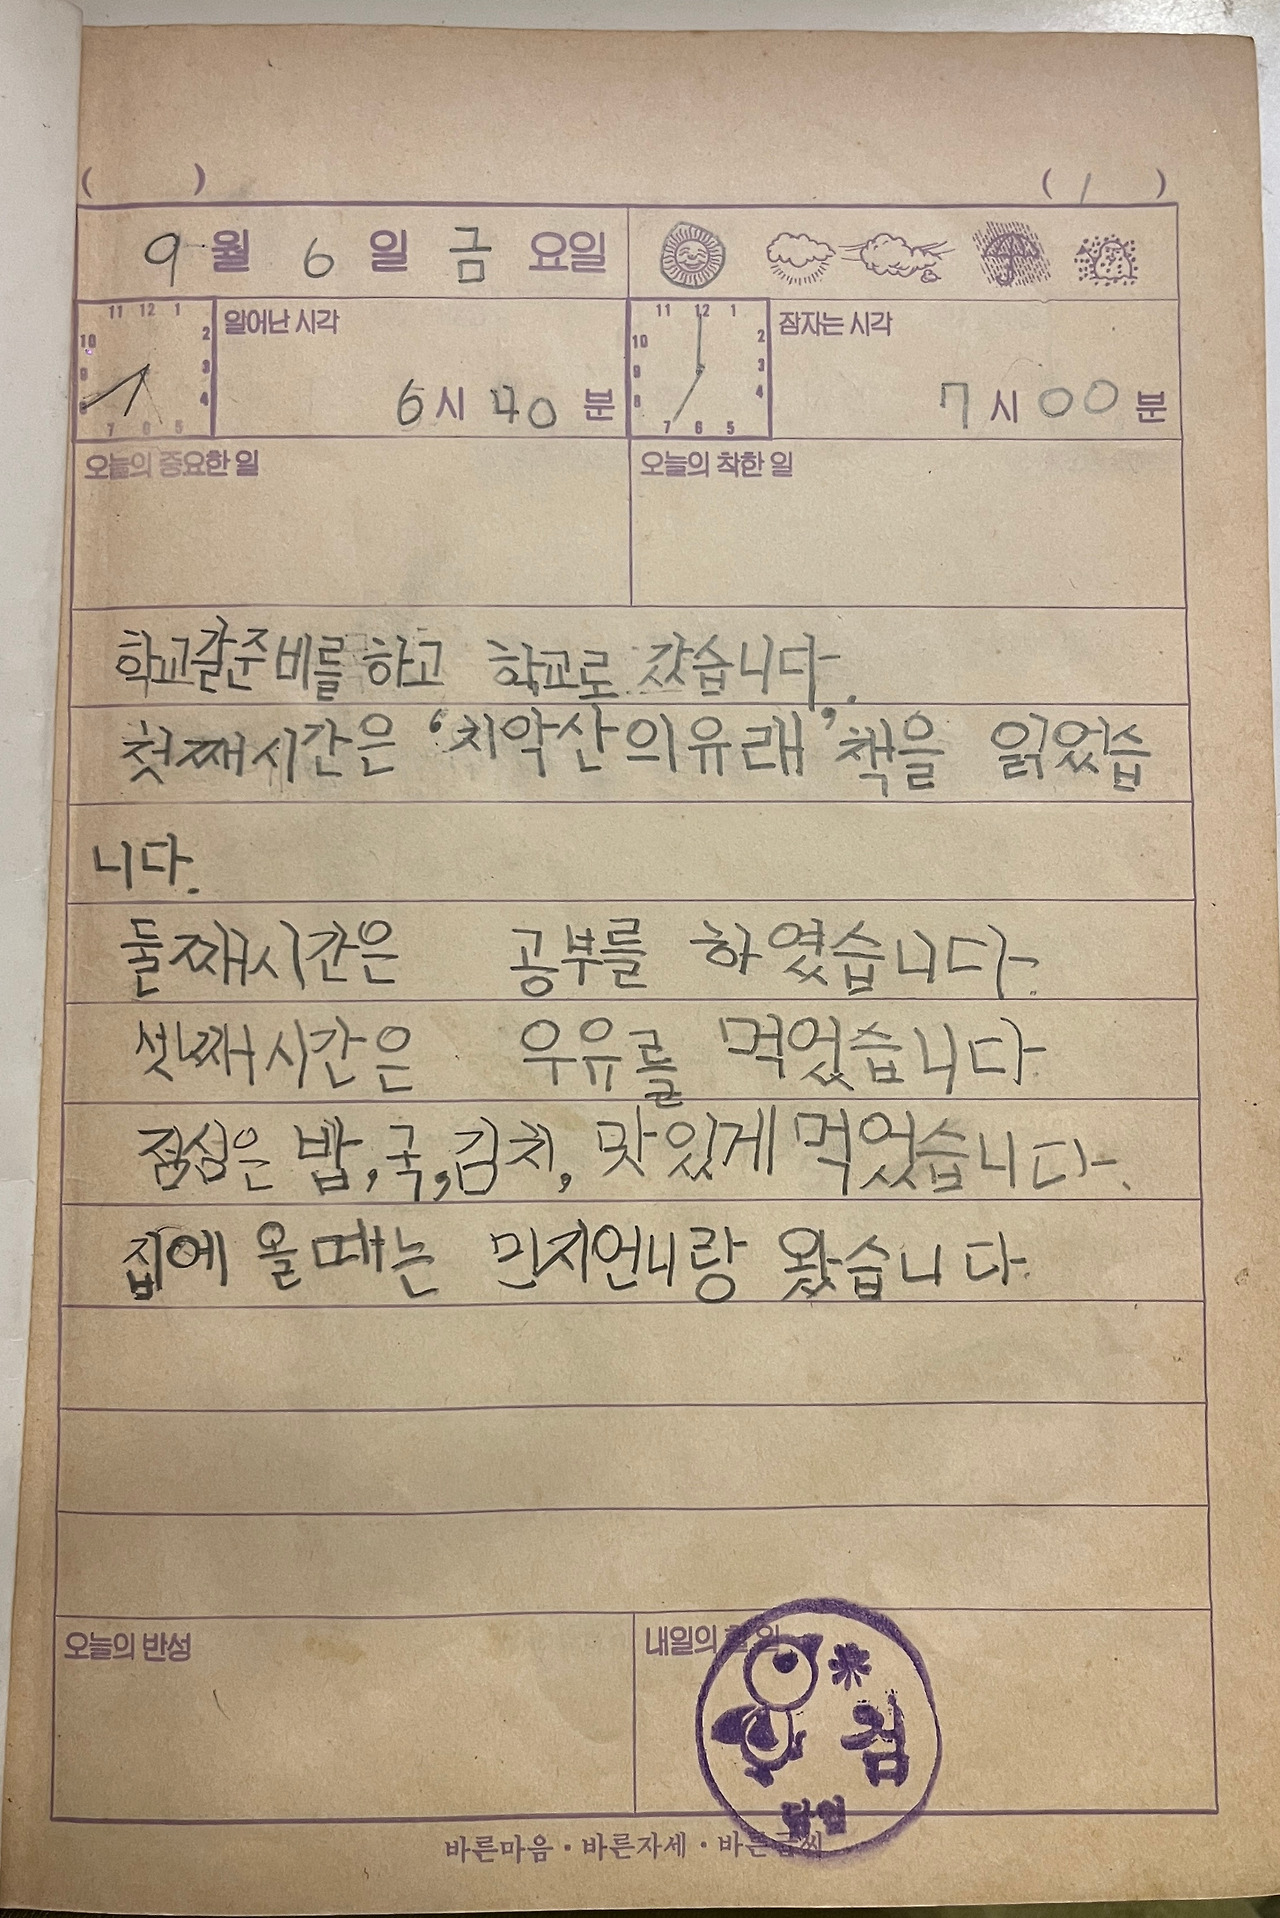 ( ) ( 1 )
9 월 6 일 금 요일
11 12 1 2 3 4 5 6 7 8 9 10 일어난 시각 6 시 40 분
11 12 1 2 3 4 5 6 7 8 9 10 잠자는 시각 7 시 00 분
오늘의 중요한 일 오늘의 착한 일
학교갈준비를 하고 학교로 갔습니다.
첫째시간은 ‘치악산의유래’ 책을 읽었습
니다.
둘째시간은 공부를 하였습니다.
셋째시간은 우유를 먹었습니다
점심은 밥,국,김치, 맛있게 먹었습니다.
집에 올때는 민지언니랑 왔습니다.
오늘의 반성 내일의 할 일
검
담임
바른마음 · 바른자세 · 바른글씨